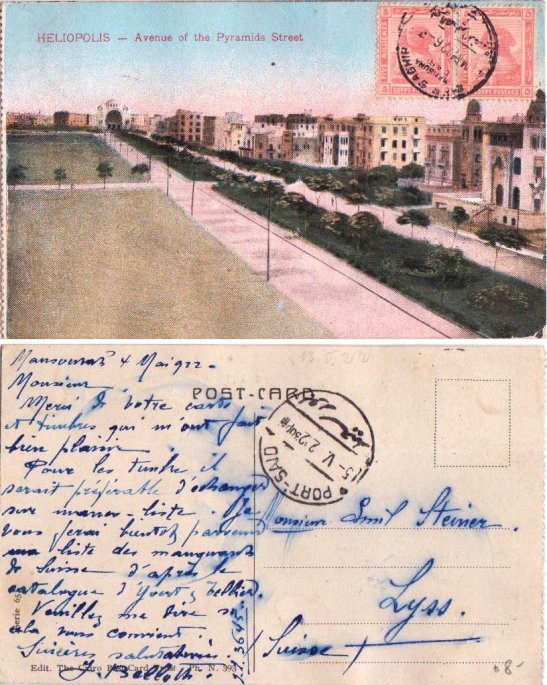 HELIOPOLIS — Avenue of the Pyramids Street
5 5
POST-CARD
Monsieur
Merci de votre carte
et timbres qui m'ont fait
bien plaisir
Pour les timbre il
serait préférable d'échanger
sur manco-liste. Je
vous ferai bientôt parvenir
une liste des manquants
de Suisse d'après le
catalogue d'Yvert & Tellier.
Veuillez me dire si
cela vous convient.
Sincères salutations.
PORT-SAID
5 V 22
Monsieur Emil Steiner.
Lyss.
Suisse
Serie 65
Edit. The Cairo Post-Card Trust Ph. N. 393
8